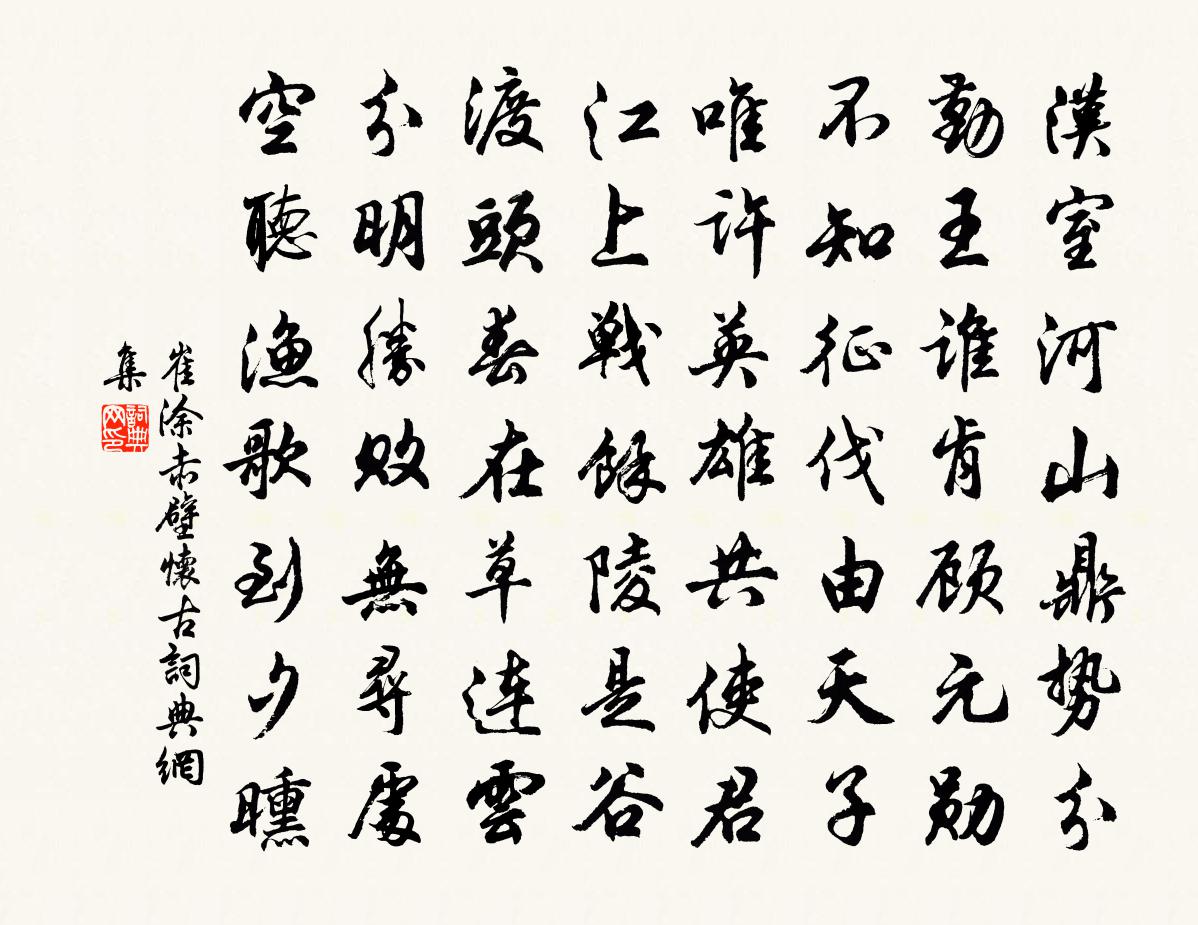 漢室河山鼎势分
勤王谁肯顾元勋
不知征伐由天子
唯许英雄共使君
江上戰餘陵是谷
渡頭春在草連雲
分明勝敗無尋處
空聽漁歌到夕曛
崔涂赤壁懷古詞典網
集
詞典网印